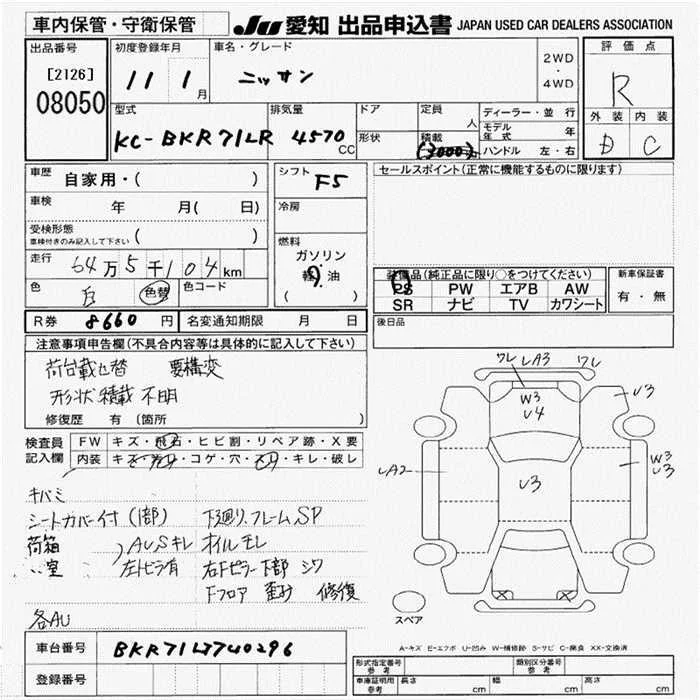 車内保管・守衛保管
JU 愛知 出品申込書 JAPAN USED CAR DEALERS ASSOCIATION
出品番号
[2126]
08050
初度登録年月
11 1月
車名・グレード
ニッサン
2WD
・
4WD
評価点
R
外装 内装
D C
型式
KC-BKR71LR
排気量
4570 CC
ドア
形状
定員
人
積載
(3000)
ディーラー・並行
モデル年式 年
ハンドル 左・右
車歴
自家用・( )
車検
年 月( 日)
受検形態
車検付きのみ記入して下さい ( )
走行
64万5千104km
色
白
色替
色コード
シフト
F5
冷房
燃料
ガソリン
軽油
( )
セールスポイント(正常に機能するものに限ります)
装備品(純正品に限り○をつけてください)
PS PW エアB AW
SR ナビ TV カワシート
新車保証書
有・無
R券 8660円
名変通知期限 月 日
後日品
注意事項申告欄(不具合内容等は具体的に記入して下さい)
荷台載せ替 要構変
形状積載不明
修復歴 有 〔箇所 〕
検査員
記入欄
FW キズ・飛石・ヒビ割・リペア跡・X要
内装 キズ・汚れ・コゲ・穴・スリ・キレ・破レ
キバミ
シートカバー付(1部) 下廻り.フレームSP
荷箱
〃室
AU,Sキレ オイルモレ
左トビラ有 右Fピラー下部 シワ
Fフロア 歪み 修復
各AU
ワレ LA3 ワレ
W3
U4
U3
LA2
U3
W3
U3
スペア
A-キズ E-エクボ U-凹み W-補修跡 S-サビ C-腐食 XX-交換済
車台番号
BKR71LJ740296
登録番号
形式指定番号
参考
類別区分番号
参考
車庫証明用
参考
長さ cm
幅 cm
高さ cm